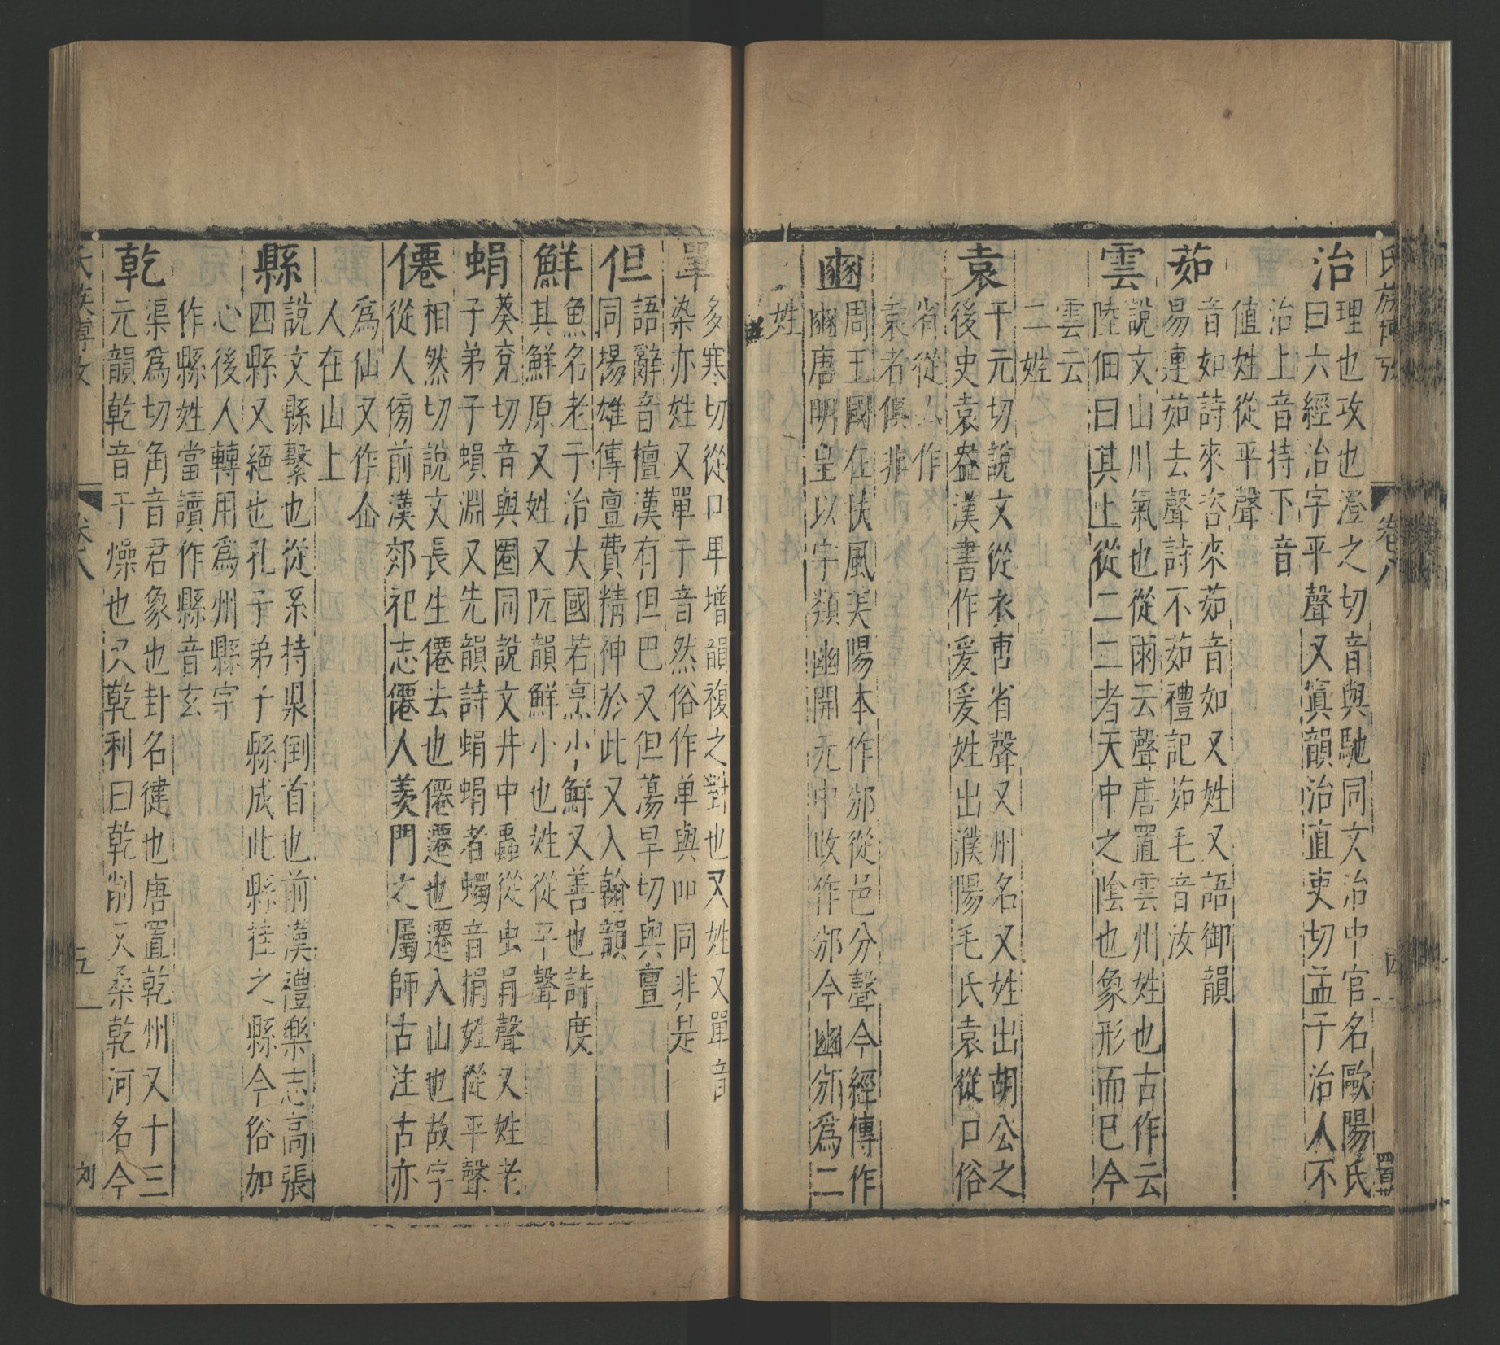 治
理也攻也澄之切音與馳同文治中官名歐陽氏
曰六經治字平聲又寘韻治直吏切孟子治人不
治上音持下音
值姓從平聲
茹
音如詩來咨來茹音如又姓又語御韻
易連茹去聲詩不茹禮記茹毛音汝
雲
說文山川氣也從雨云聲唐置雲州姓也古作云
陸佃曰其上從二二者天中之陰也象形而已今
雲云
二姓
袁
于元切說文從衣叀省聲又州名又姓出胡公之
後史袁盎漢書作爰爰姓出濮陽毛氏袁從口俗
省從厶作
袁者俱非
豳
周王國在扶風美陽本作邠從邑分聲今經傳作
豳唐明皇以字類幽開元中改作邠今豳邠為二
姓
單
多寒切從口甲增韻複之對也又姓又單音
染亦姓又單于音然俗作单與吅同非是
但
語辭音檀漢有但巴又但蕩旱切與亶
同揚雄傳亶費精神於此又入翰韻
鮮
魚名老子治大國若烹小鮮又善也詩度
其鮮原又姓又阮韻鮮小也姓從平聲
蜎
葵兗切音與圈同說文井中蟲從虫肙聲又姓老
子弟子蜎淵又先韻詩蜎蜎者蠋音捐姓從平聲
僊
相然切說文長生僊去也僊遷也遷入山也故字
從人㑂前漢郊祀志僊人羨門之屬師古注古亦
為仙又作仚
人在山上
縣
說文縣繫也從系持県倒首也前漢禮樂志高張
四縣又絕也孔子弟子縣成此縣挂之縣今俗加
心後人轉用為州縣字
作縣姓當讀作縣音玄
乾
渠為切角音君象也卦名健也唐置乾州又十三
元韻乾音干燥也又乾利曰乾削又桑乾河名今
卷八
五
刘